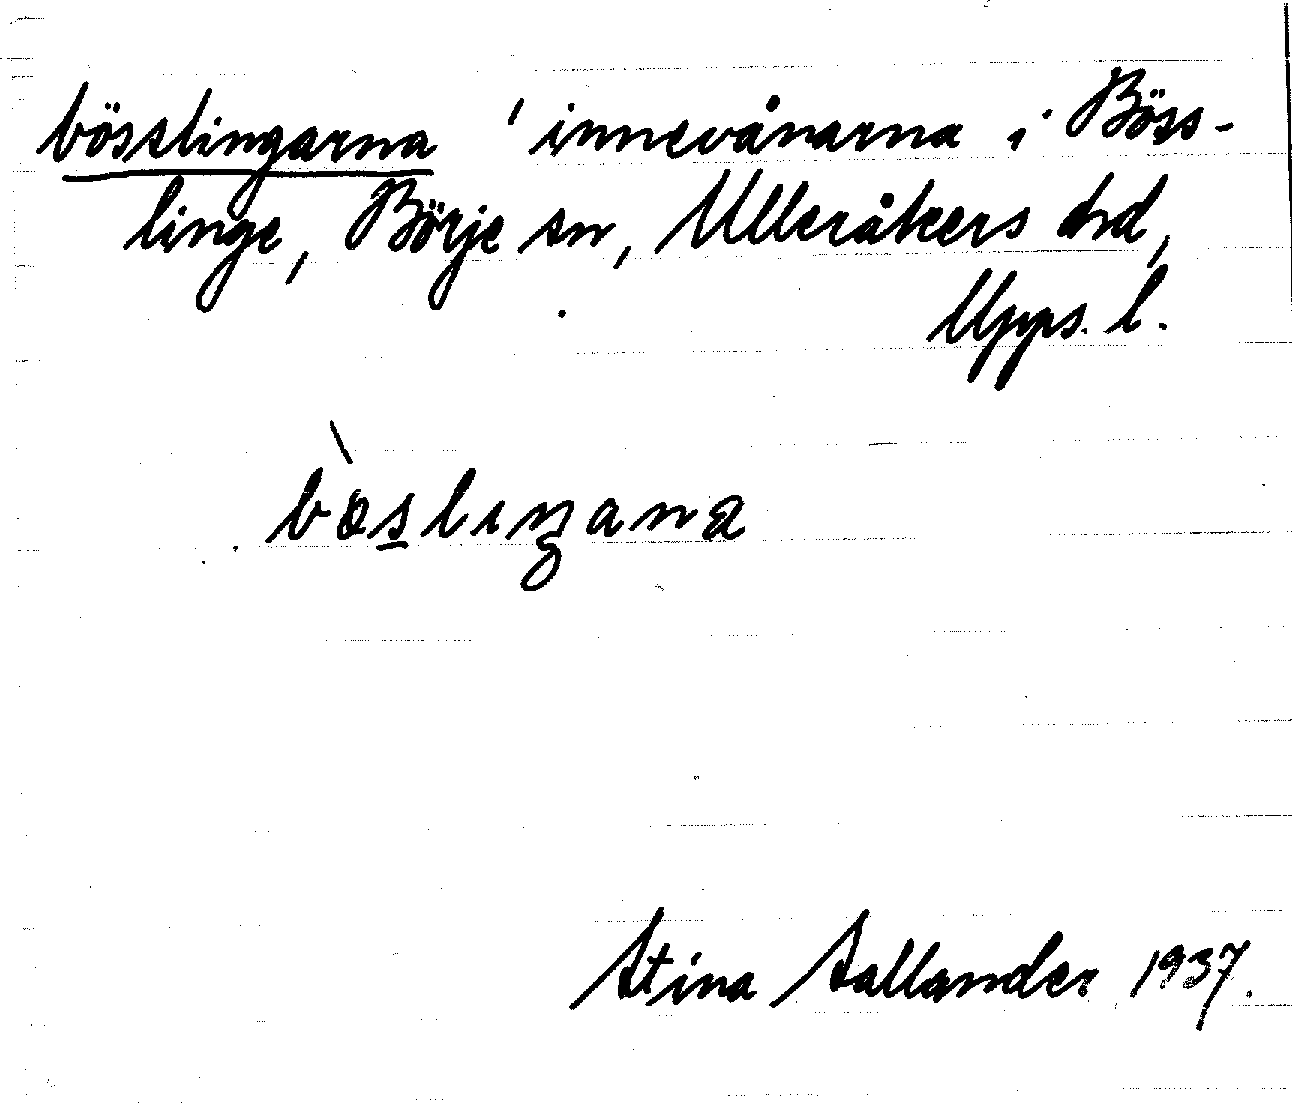 bösslingarna 'innevånarna i Böss-
linge, Börje sn, Ulleråkers hrd,
Upps. l.
bɵ̀slıŋana
Stina Sallander 1937.